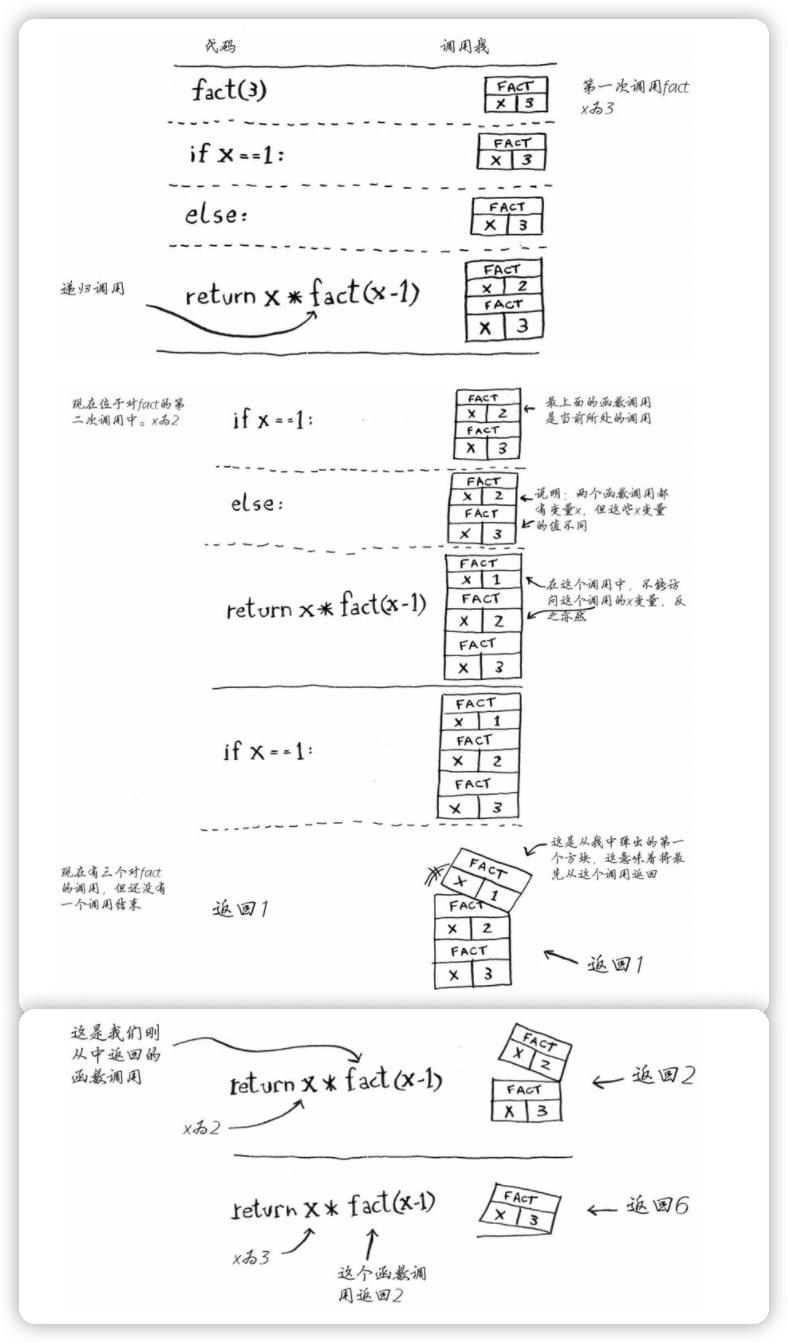 代码 调用我
fact(3)
FACT
X 3
第一次调用fact
x为3
if x==1:
FACT
X 3
else:
FACT
X 3
递归调用
return x * fact(x-1)
FACT
X 2
FACT
X 3
现在位于对fact的第
二次调用中。x为2
if x==1:
FACT
X 2
FACT
X 3
最上面的函数调用
是当前所处的调用
else:
FACT
X 2
FACT
X 3
说明：两个函数调用都
有变量x，但这些x变量
的值不同
return x * fact(x-1)
FACT
X 1
FACT
X 2
FACT
X 3
在这个调用中，不能访
问这个调用的x变量，反
之亦然
if x==1:
FACT
X 1
FACT
X 2
FACT
X 3
现在有三个对fact
的调用，但还没有
一个调用结束
返回1
FACT
X 1
FACT
X 2
FACT
X 3
这是从我中弹出的第一
个方块，这意味着将最
先从这个调用返回
返回1
这是我们刚
从中返回的
函数调用
return x * fact(x-1)
x为2
FACT
X 2
FACT
X 3
返回2
return x * fact(x-1)
x为3
这个函数调
用返回2
FACT
X 3
返回6